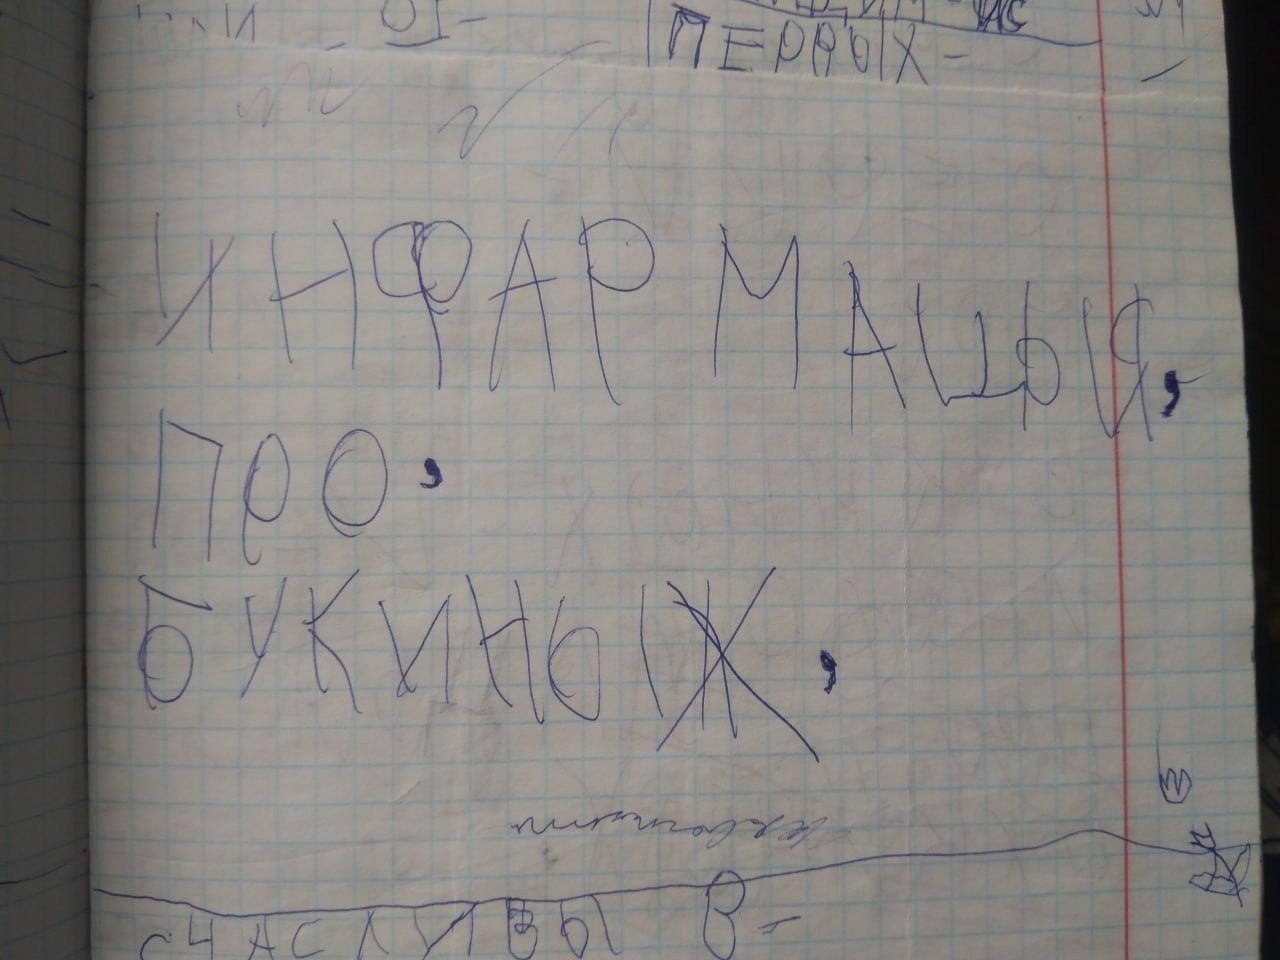 ПЕРВЫХ-
ИНФАРМАЦЫЯ,
ПРО,
БУКИНЫЖ,
СЧАСЛИВЫ В-